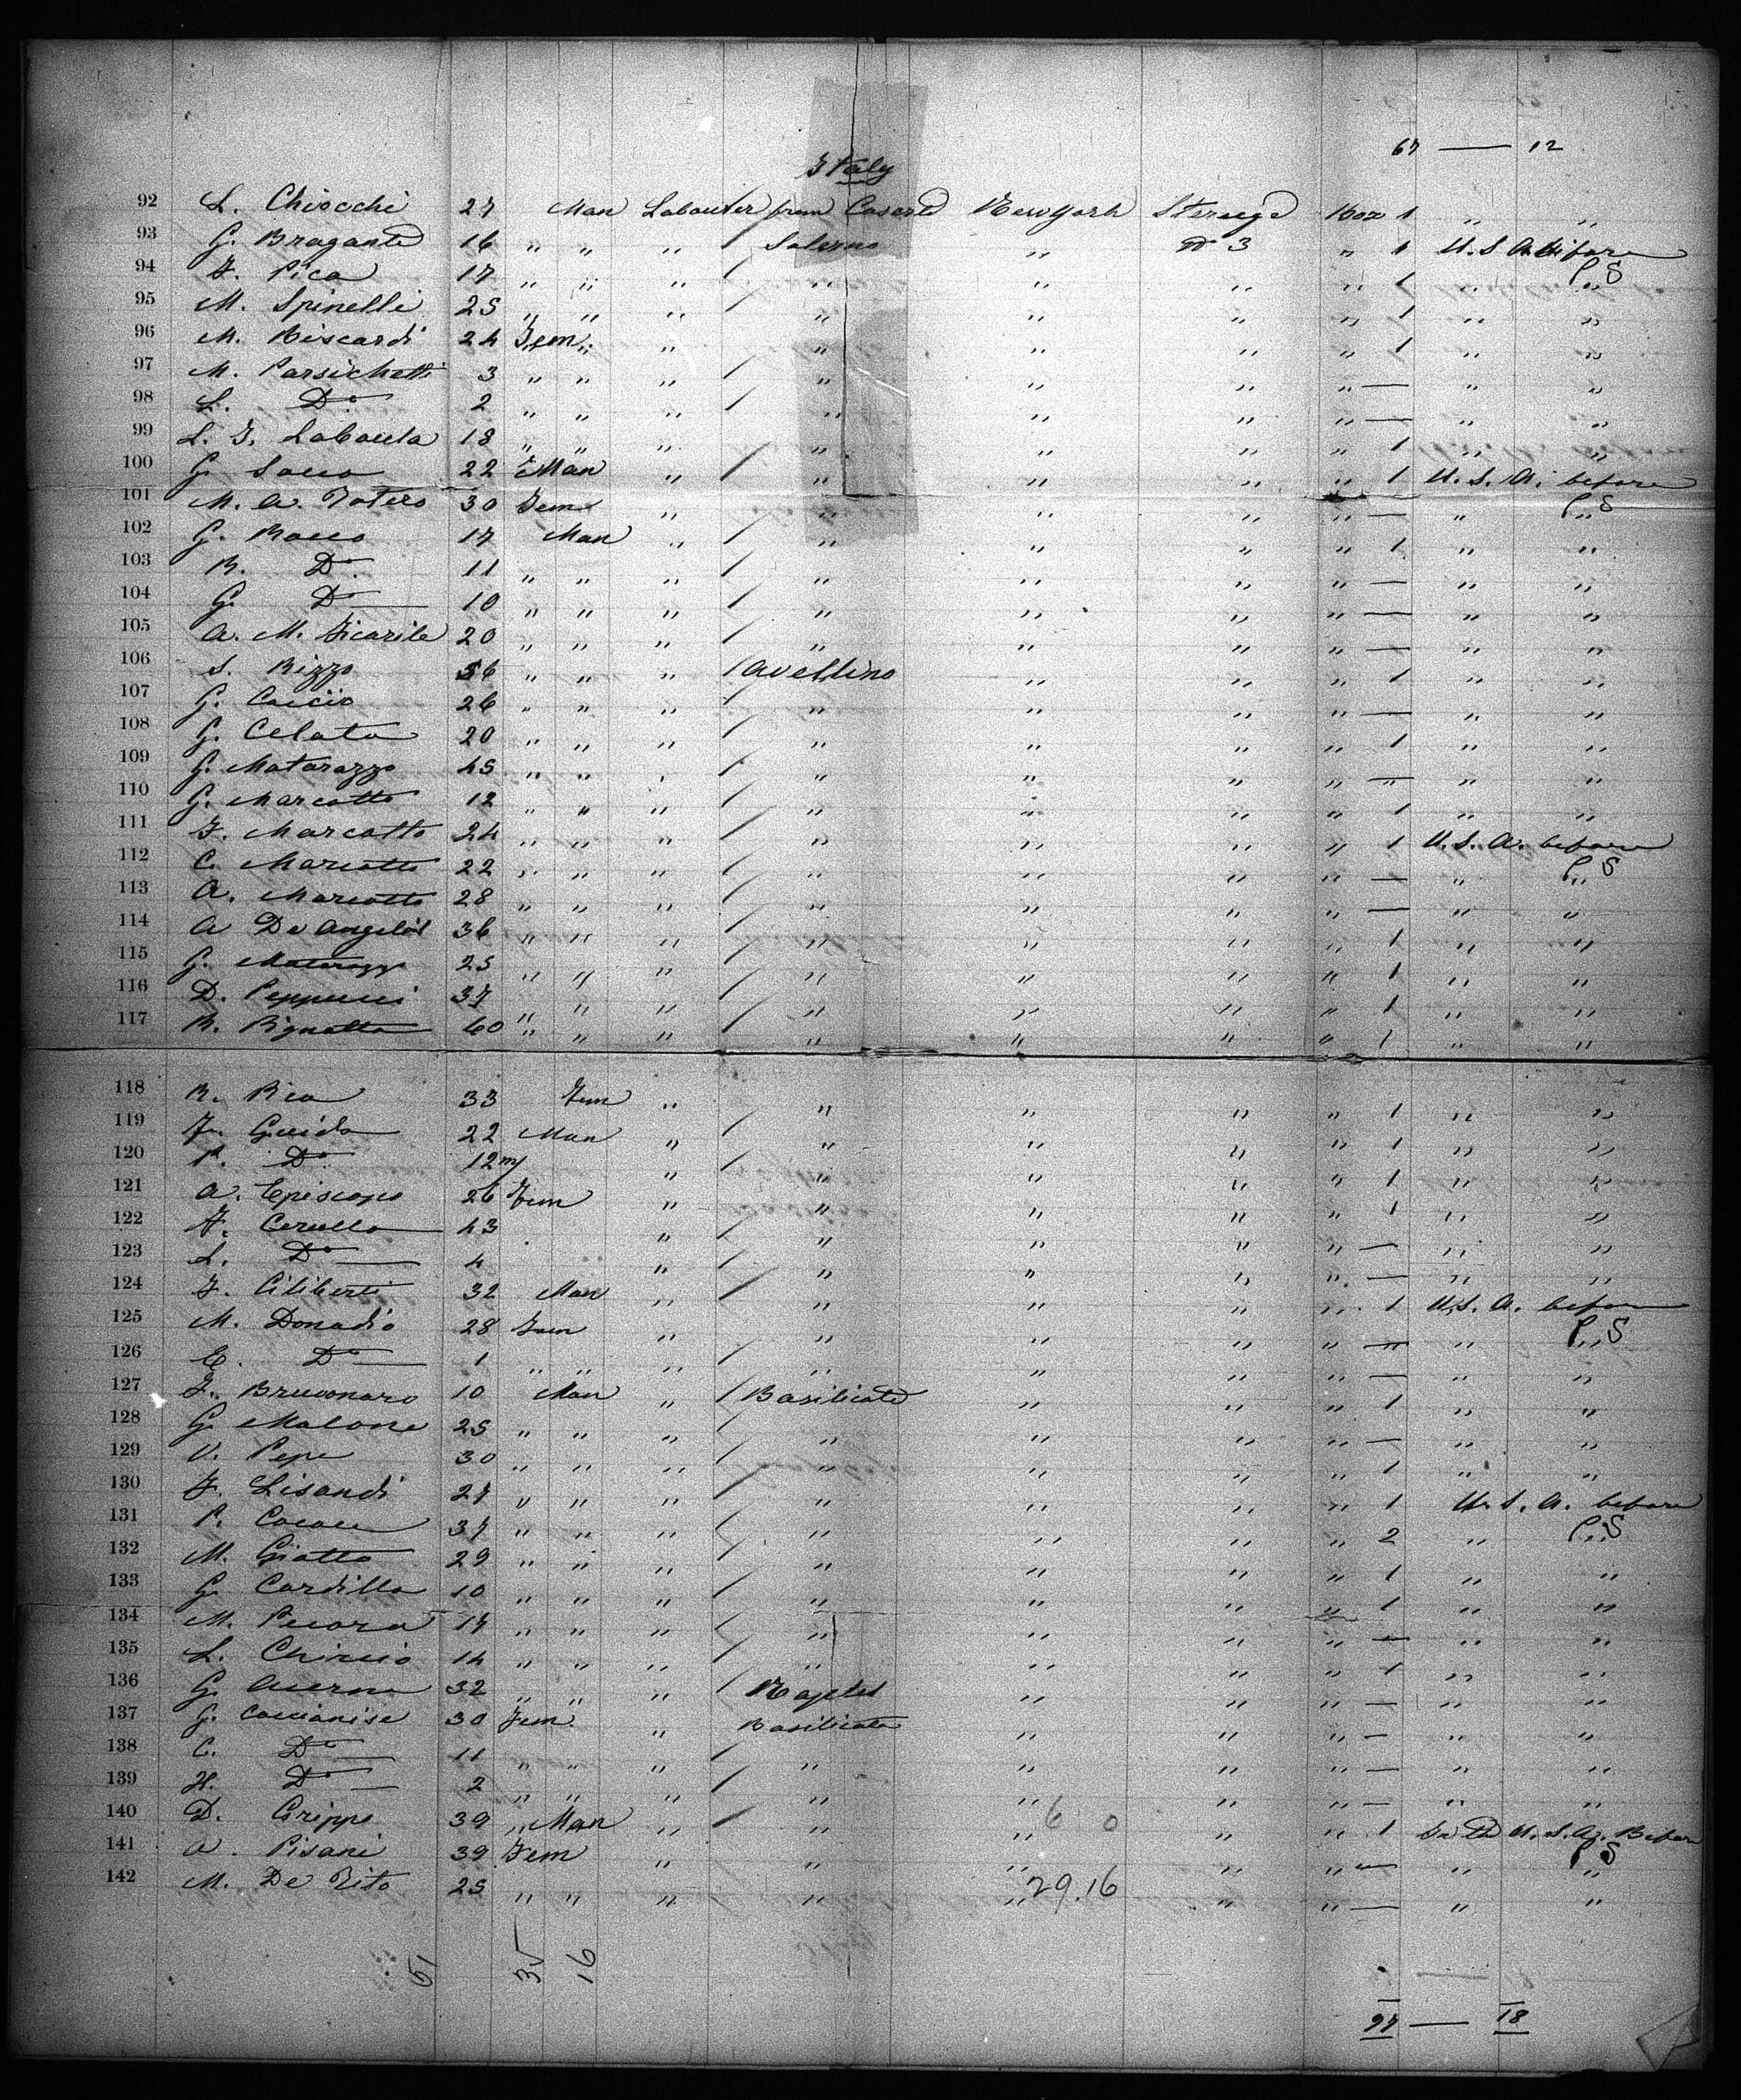 67 — 12
Italy
92 L. Chiocchi 27 Man Labouter from Caserta New York Steerage Box 1 " "
93 G. Bragante 16 " " " / Salerno " Do 3 " 1 U.S.A. before
94 F. Pica 17 " " " / " " " " 1 " P S
95 M. Spinelli 25 " " " / " " " " 1 " "
96 M. Biscardi 24 Fem. " " " " " " 1 " "
97 M. Parsichetti 3 " " " / " " " " — " "
98 L. Do 2 " " " / " " " " — " "
99 L. F. Labouta 18 " " " " " " " 1 " "
100 G. Sacco 22 Man " / " " " " 1 U.S.A. before
101 M. A. Totero 30 Fem " " " " " — " P S
102 G. Rocco 17 Man " / " " " " 1 " "
103 R. Do. 11 " " " / " " " " — " "
104 G. Do — 10 " " " / " " " " — " "
105 A. M. Ficarile 20 " " " / " " " " — " "
106 S. Rizzo 56 " " " / Avellino " " " 1 " "
107 G. Caccio 26 " " " / " " " " — " "
108 G. Celato 20 " " " / " " " " 1 " "
109 G. Matarazzo 45 " " " / " " " " — " "
110 G. Marcotto 12 " " " / " " " " 1 " "
111 F. Marcotto 24 " " " / " " " " 1 U.S.A. before
112 C. Marcotto 22 " " " / " " " " — " P S
113 A. Marcotto 28 " " " / " " " " — " "
114 A De Angelis 36 " " " / " " " " 1 " "
115 G. Matarazzo 25 " " " / " " " " 1 " "
116 D. Peppucci 37 " " " / " " " " 1 " "
117 R. Pignatta 60 " " " / " " " " 1 " "
118 R. Rica 33 Fem " " " " " 1 " "
119 F. Guida 22 Man " / " " " " 1 " "
120 P. Do 12 m/ " / " " " " 1 " "
121 A. Episcopo 26 Fem " " " " " 1 " "
122 F. Cerullo 43 " / " " " " — " "
123 L. Do — 4 " / " " " " — " "
124 F. Ciliberti 32 Man " / " " " " 1 U.S.A. before
125 M. Donadio 28 Fem " " " " " — " P S
126 E. Do — 1 " " " / " " " " — " "
127 F. Bruonaro 10 Man " / Basilicata " " " 1 " "
128 G. Malone 25 " " " / " " " " — " "
129 V. Pepe 30 " " " / " " " " 1 " "
130 F. Lisandi 27 " " " / " " " " 1 U.S.A. before
131 P. 37 " " " / " " " " 2 " P S
132 M. Giatto 29 " " " / " " " " 1 " "
133 G. Cardillo 10 " " " / " " " " 1 " "
134 M. Pecora 17 " " " / " " " " — " "
135 L. Chiricio 14 " " " / " " " " 1 " "
136 G. Acerna 32 " " " / Naples " " " — " "
137 G. Caccianise 30 Fem. " Basilicata " " " — " "
138 C. Do — 11 " " " / " " " " — " "
139 H. Do — 2 " " " / " " " " — " "
140 D. Grippo 39 " Man " / " " 6 0 " " 1 U.S.A. Before
141 A. Pisani 39 Fem " " " " " — " P S
142 M. De Tito 25 " " " " " 29.16 " " — " "
51 35 16
97 — 18